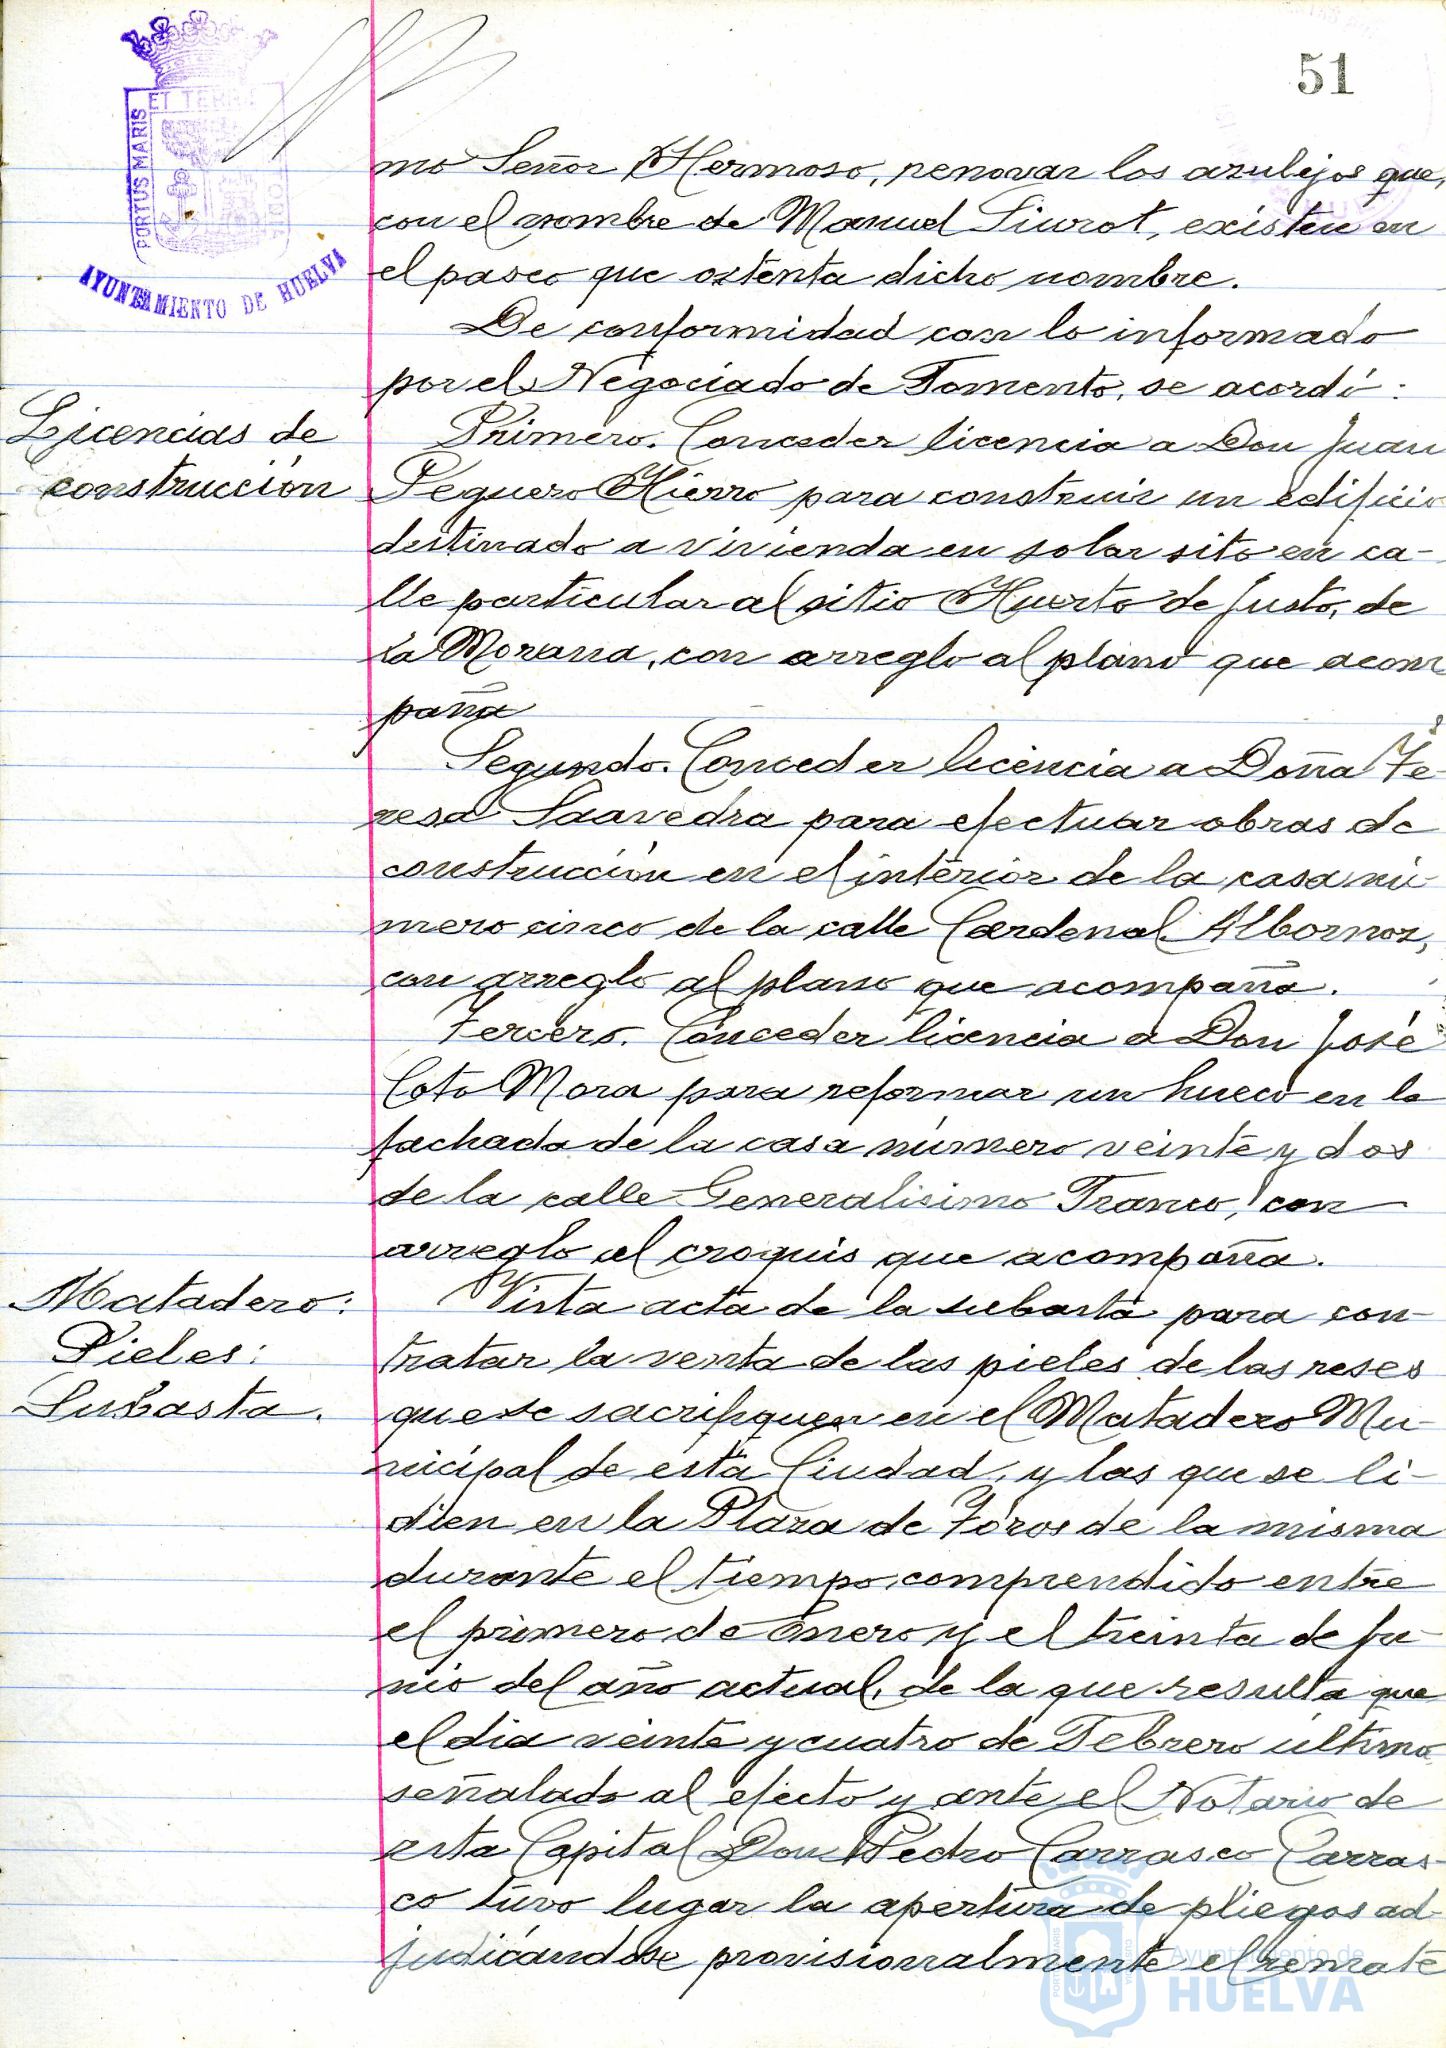 51
PORTUS MARIS ET TERRAE CUSTODIA
AYUNTAMIENTO DE HUELVA
mo Señor Hermoso, renovar los azulejos que,
con el nombre de Manuel Siurot, existen en
el paseo que ostenta dicho nombre.
De conformidad con lo informado
por el Negociado de Fomento, se acordó:
Licencias de
construcción
Primero. Conceder licencia a Don Juan
Peguero Hierro para construir un edificio
destinado a vivienda en solar sito en ca-
lle particular al sitio Huerto de Justo, de
La Morana, con arreglo al plano que acom
paña
Segundo. Conceder licencia a Doña Te-
resa Saavedra para efectuar obras de
construcción en el interior de la casa nú-
mero cinco de la calle Cardenal Albornoz,
con arreglo al plano que acompaña.
Tercero. Conceder licencia a Don José
Coto Mora para reformar un hueco en la
fachada de la casa número veinte y dos
de la calle Generalísimo Franco, con
arreglo al croquis que acompaña.
Matadero:
Pieles:
Subasta.
Vista acta de la subasta para con-
tratar la venta de las pieles de las reses
que se sacrifiquen en el Matadero Mu-
nicipal de esta Ciudad, y las que se li-
dien en la Plaza de Toros de la misma
durante el tiempo comprendido entre
el primero de Enero y el treinta de Ju-
nio del año actual, de la que resulta que
el dia veinte y cuatro de Febrero último
señalado al efecto y ante el Notario de
esta Capital Don Pedro Carrasco Carras-
co tuvo lugar la apertura de pliegos ad-
judicándose provisionalmente el remate
Ayuntamiento de
HUELVA